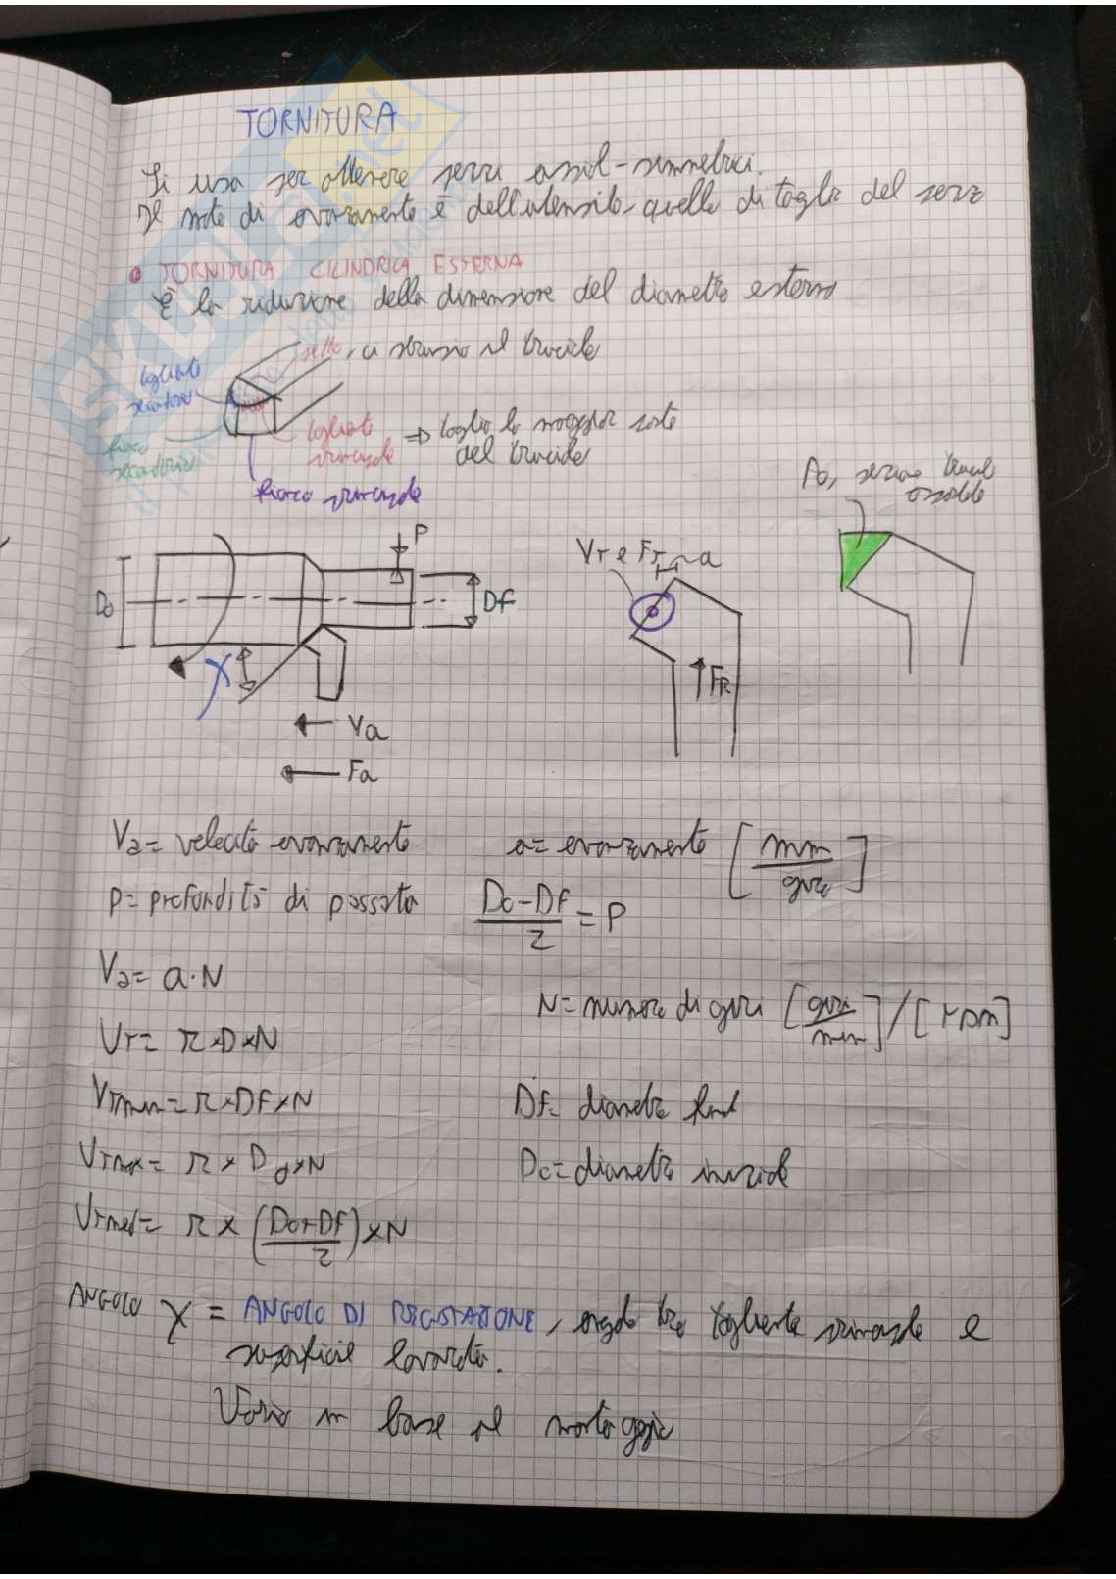 TORNITURA
Si usa per ottenere pezzi assial-simmetrici.
Il moto di avanzamento è dell'utensile, quello di taglio del pezzo
TORNITURA CILINDRICA ESTERNA
È la riduzione della dimensione del diametro esterno
petto, ci struscia il truciolo
tagliente
secondario
tagliente
principale
⇒ taglia la maggior parte
del truciolo
fianco
secondario
fianco principale
A0, sezione truciolo
P
D0
Df
χ
Va
Fa
Vr e Fr
a
FR
Va= velocità avanzamento
a= avanzamento [mm/giro]
P= profondità di passata
(D0-Df)/2 = P
Va= a·N
N= numero di giri [giri/min]/[rpm]
Vr= π×D×N
Vrmin= π×Df×N
Df= diametro finale
Vrmax= π×D0×N
D0= diametro iniziale
Vrmed= π×((D0+Df)/2)×N
ANGOLO χ = ANGOLO DI REGISTRAZIONE, angolo tra tagliente principale e
superficie lavorata.
Varia in base al montaggio